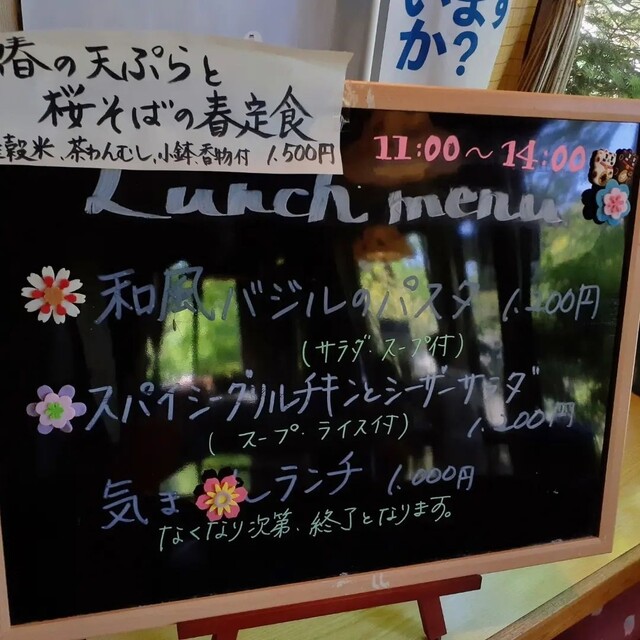 いま
か?
春の天ぷらと
桜そばの春定食
穀米、茶わんむし、小鉢、香物付 1,500円
11:00～14:00
Lunch menu
和風バジルのパスタ 1,200円
(サラダ・スープ付)
スパイシーグリルチキンとシーザーサラダ
(スープ・ライス付) 1,200円
気ま しランチ 1,000円
なくなり次第、終了となります。